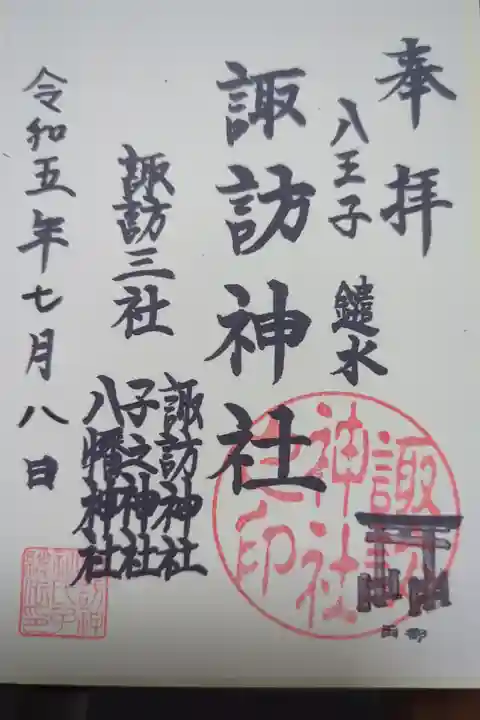 奉拝
八王子 鑓水
諏訪神社
諏訪三社
諏訪神社
子之神社
八幡神社
令和五年七月八日
諏訪
神社
印